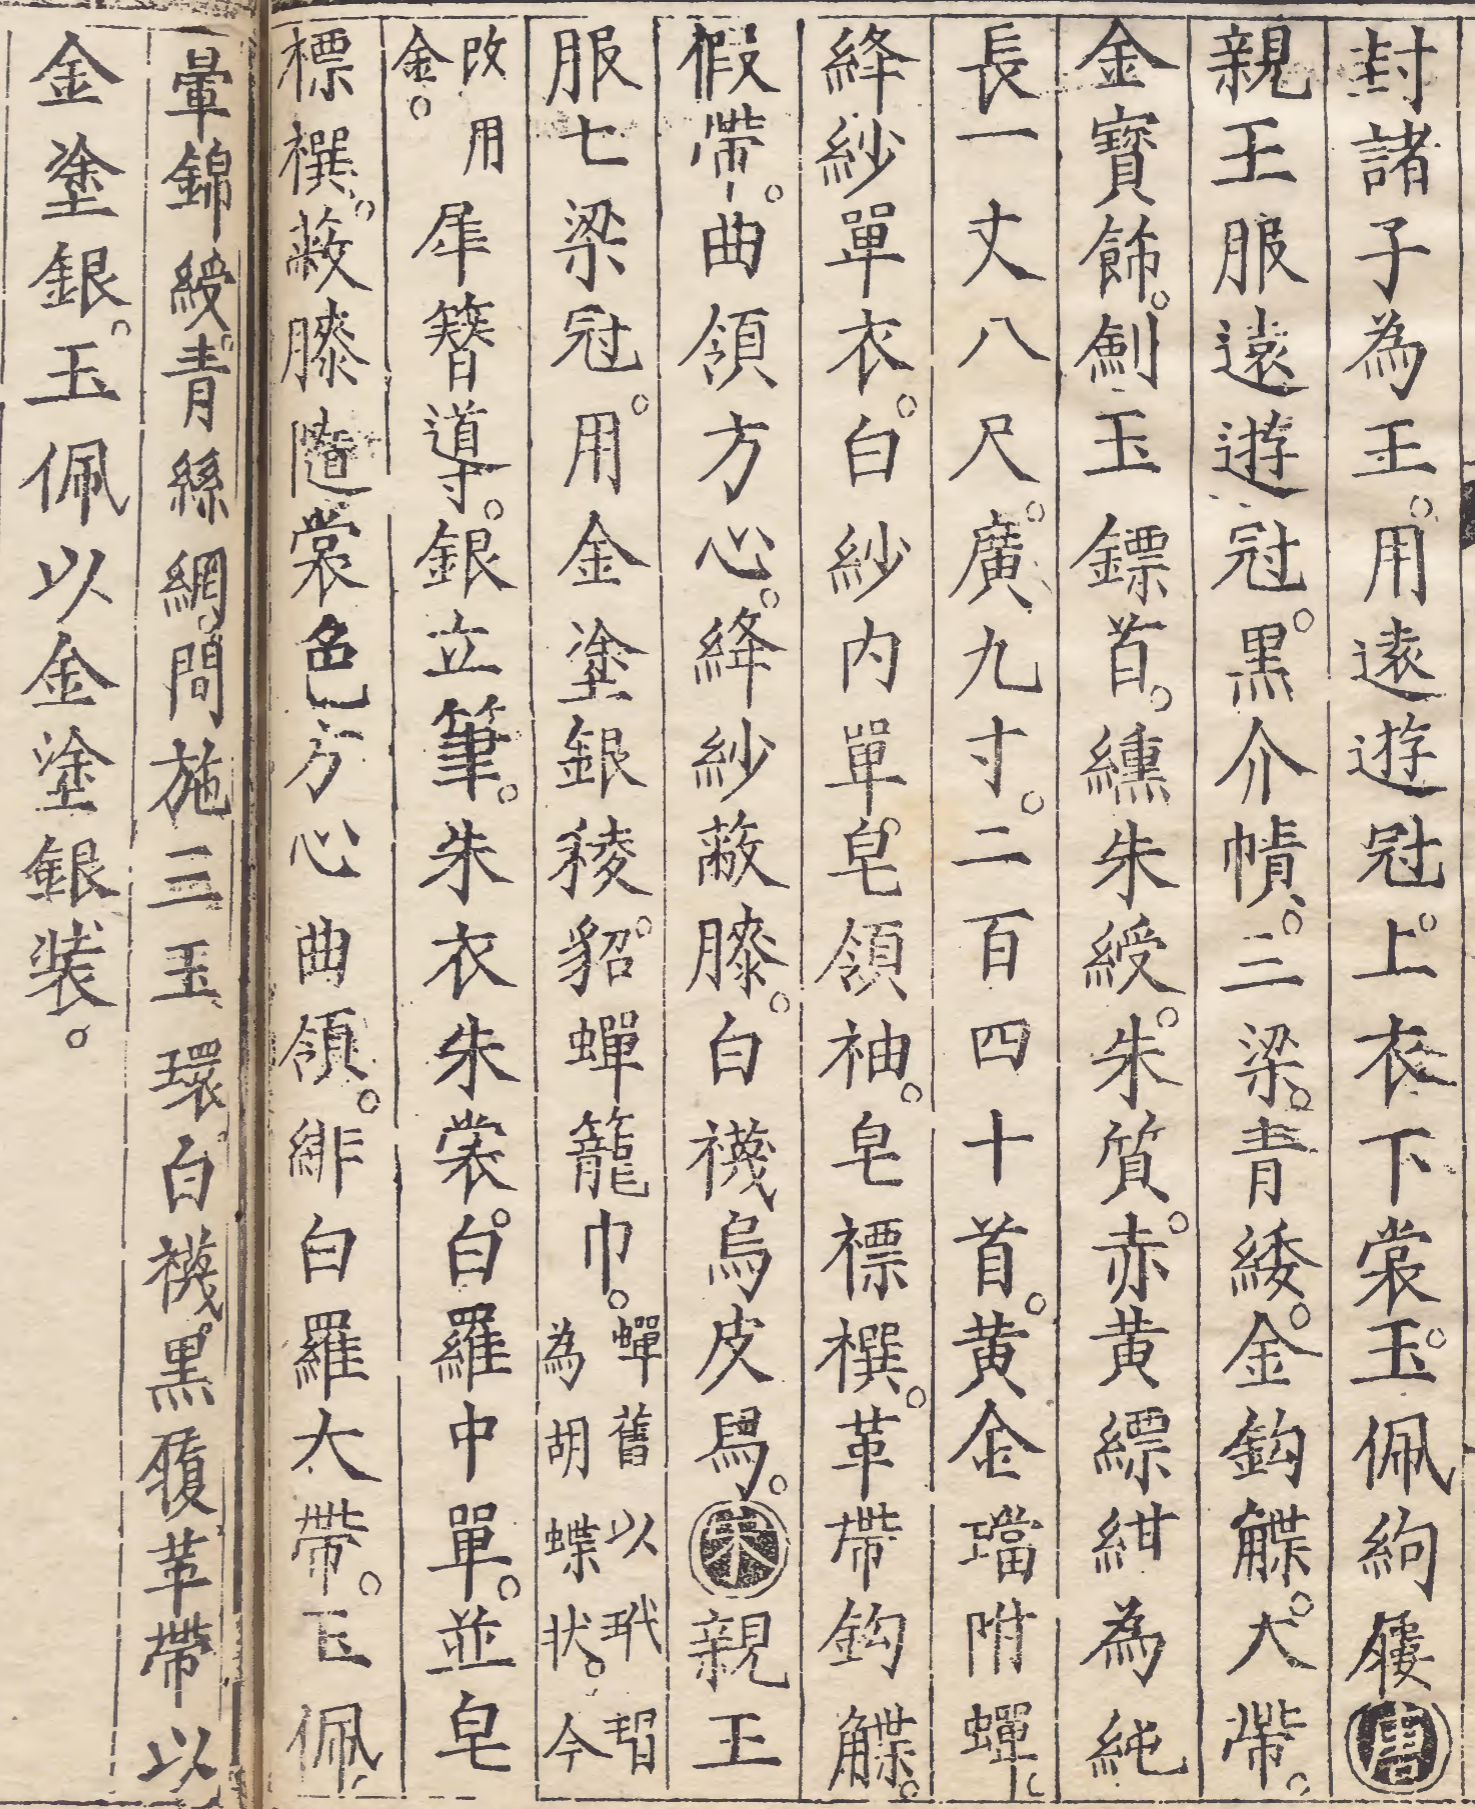 封諸子為王。用遠遊冠。上衣下裳。玉佩絇屨唐
親王服遠遊冠。黑介幘。三梁。青緌。金鈎䚢。大帶。
金寶飾。劍玉鏢首。纁朱綬。朱質。赤黄縹紺為純
長一丈八尺。廣九寸。二百四十首。黄金璫附蟬。
絳紗單衣。白紗内單。皂領袖。皂褾襈。革帶鈎䚢。
假帶。曲領方心。絳紗蔽膝。白襪烏皮舄。宋親王
服七梁冠。用金塗銀稜。貂蟬籠巾。蟬舊以玳瑁
為胡蝶狀。今
改用
金。犀簪導。銀立筆。朱衣朱裳。白羅中單。並皂
褾襈。蔽膝隨裳色方心曲領。緋白羅大帶。玉佩
暈錦綬。青絲網。間施三玉環。白襪。黑履革帶以
金塗銀。玉佩以金塗銀装。